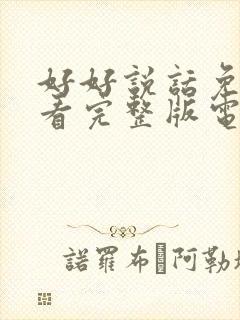 好好説話免
看完整版電
諾羅布 阿勒坦